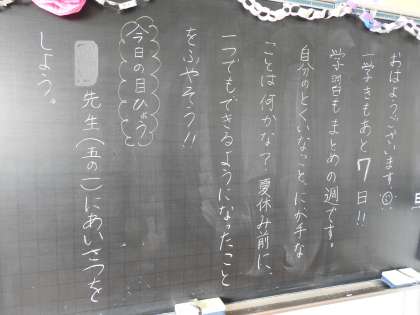 おはようございます☺
一学きもあと7日!!
学習もまとめの週です。
自分のとくいなこと、にが手な
ことは何かな?夏休み前に、
一つでもできるようになったこと
をふやそう!!
今日の目ひょう
先生(五の一)にあいさつを
しよう。